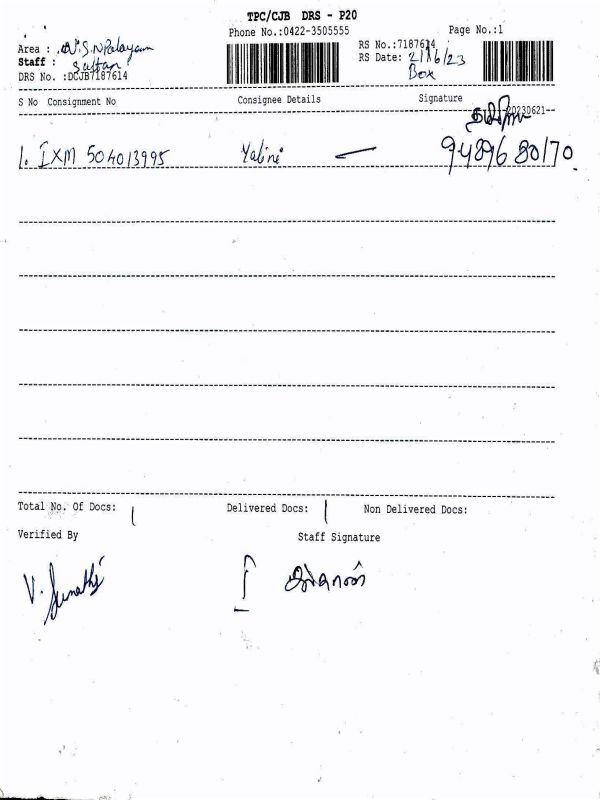 TPC/CJB DRS - P20
Phone No.:0422-3505555
Page No.:1
Area : N.S.N Palayam
Staff : Sultan
DRS No. :DCJB7187614
RS No.:7187614
RS Date: 21/6/23
Box
S No Consignment No Consignee Details Signature
20230621--
1. IXM 504013995 Yalini 9489680170
Total No. Of Docs: 1 Delivered Docs: 1 Non Delivered Docs:
Verified By Staff Signature
V.